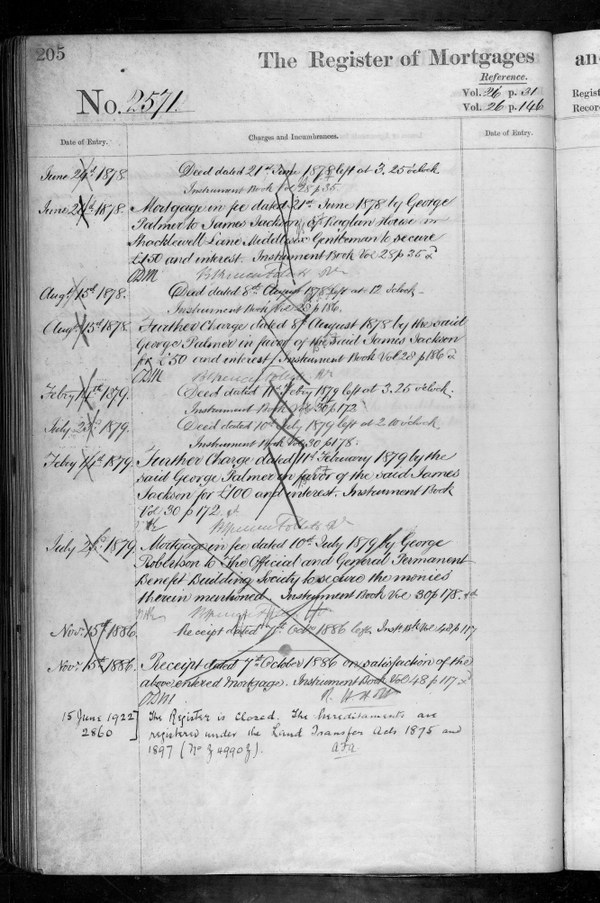 205
The Register of Mortgages
Reference.
Vol. 26 p. 31
No. 2571
Vol. 26 p. 146
Date of Entry.
Charges and Incumbrances.
Date of Entry.
June 24th 1878
Deed dated 21st June 1878 left at 3.25 o'clock
Instrument Book Vol 28 p 35
June 24th 1878.
Mortgage in fee dated 21st June 1878 by George
Palmer to James Jackson of Raglan House in
Shacklewell Lane Middlesex Gentleman to secure
£150 and interest. Instrument Book Vol 28 p 35
CDM
Augt. 15th 1878.
Deed dated 8th August 1878 left at 12 o'clock
Instrument Book Vol 28 p 186.
Augt. 15th 1878
Further Charge dated 8th August 1878 by the said
George Palmer in favor of the said James Jackson
for £50 and interest Instrument Book Vol 28 p 186
CDM
Febry 14th 1879.
Deed dated 11th Febry 1879 left at 3.25 o'clock.
Instrument Book Vol 30 p 172
July 1879.
Deed dated 10th July 1879 left at 2 o'clock.
Instrument Book Vol 30 p 178.
Febry 14th 1879
Further Charge dated 11th February 1879 by the
said George Palmer in favor of the said James
Jackson for £100 and interest. Instrument Book
Vol 30 p 172.
July 1879
Mortgage in fee dated 10th July 1879 by George
Robertson to The Official and General Permanent
Benefit Building Society to secure the monies
therein mentioned. Instrument Book Vol 30 p 178.
Novr. 15th 1886.
Receipt dated 7th Octr 1886 left. Inst. Bk Vol 48 p 117
Novr. 15th 1886.
Receipt dated 7th October 1886 on satisfaction of the
above entered mortgage. Instrument Book Vol 48 p 117
CDM
R H Holt
15 June 1922
2860
The Register is closed. The hereditaments are
registered under the Land Transfer Acts 1875 and
1897 (No
an
Regist
Recor